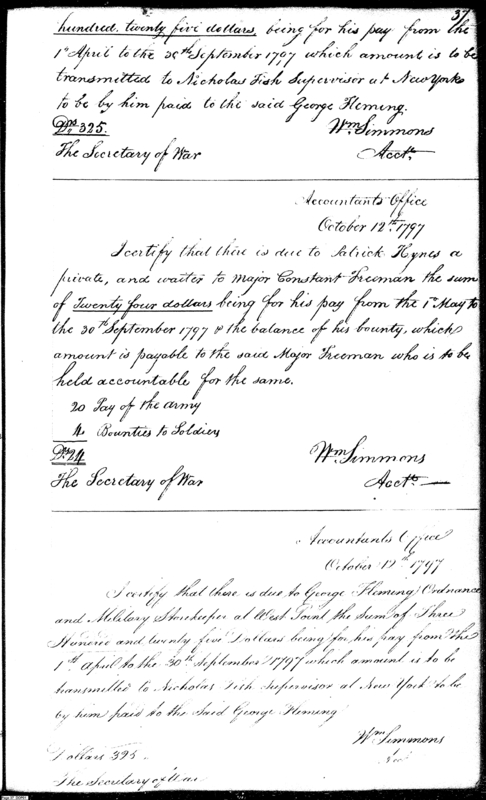 37
hundred twenty five dollars, being for his pay from the
1st April to the 30th September 1797 which amount is to be
transmitted to Nicholas Fish Supervisor at New York
to be by him paid to the said George Fleming.
Drs 325.
Wm Simmons
The Secretary of War
Acctt
Accountants Office
October 12th 1797
I certify that there is due to Patrick Hynes a
private, and waiter to Major Constant Freeman the sum
of Twenty four dollars being for his pay from the 1st May to
the 30th September 1797 & the balance of his bounty, which
amount is payable to the said Major Freeman who is to be
held accountable for the same.
20 Pay of the army
4 Bounties to Soldiers
Drs 24
Wm Simmons
The Secretary of War
Acctt
Accountants Office
October 12th 1797
I certify that there is due to George Fleming Ordnance
and Military Storekeeper at West Point the sum of Three
Hundred and twenty five Dollars being for his pay from the
1st April to the 30th September 1797 which amount is to be
transmitted to Nicholas Fish Supervisor at New York to be
by him paid to the said George Fleming
Wm Simmons
Dollars 325
The Secretary of War